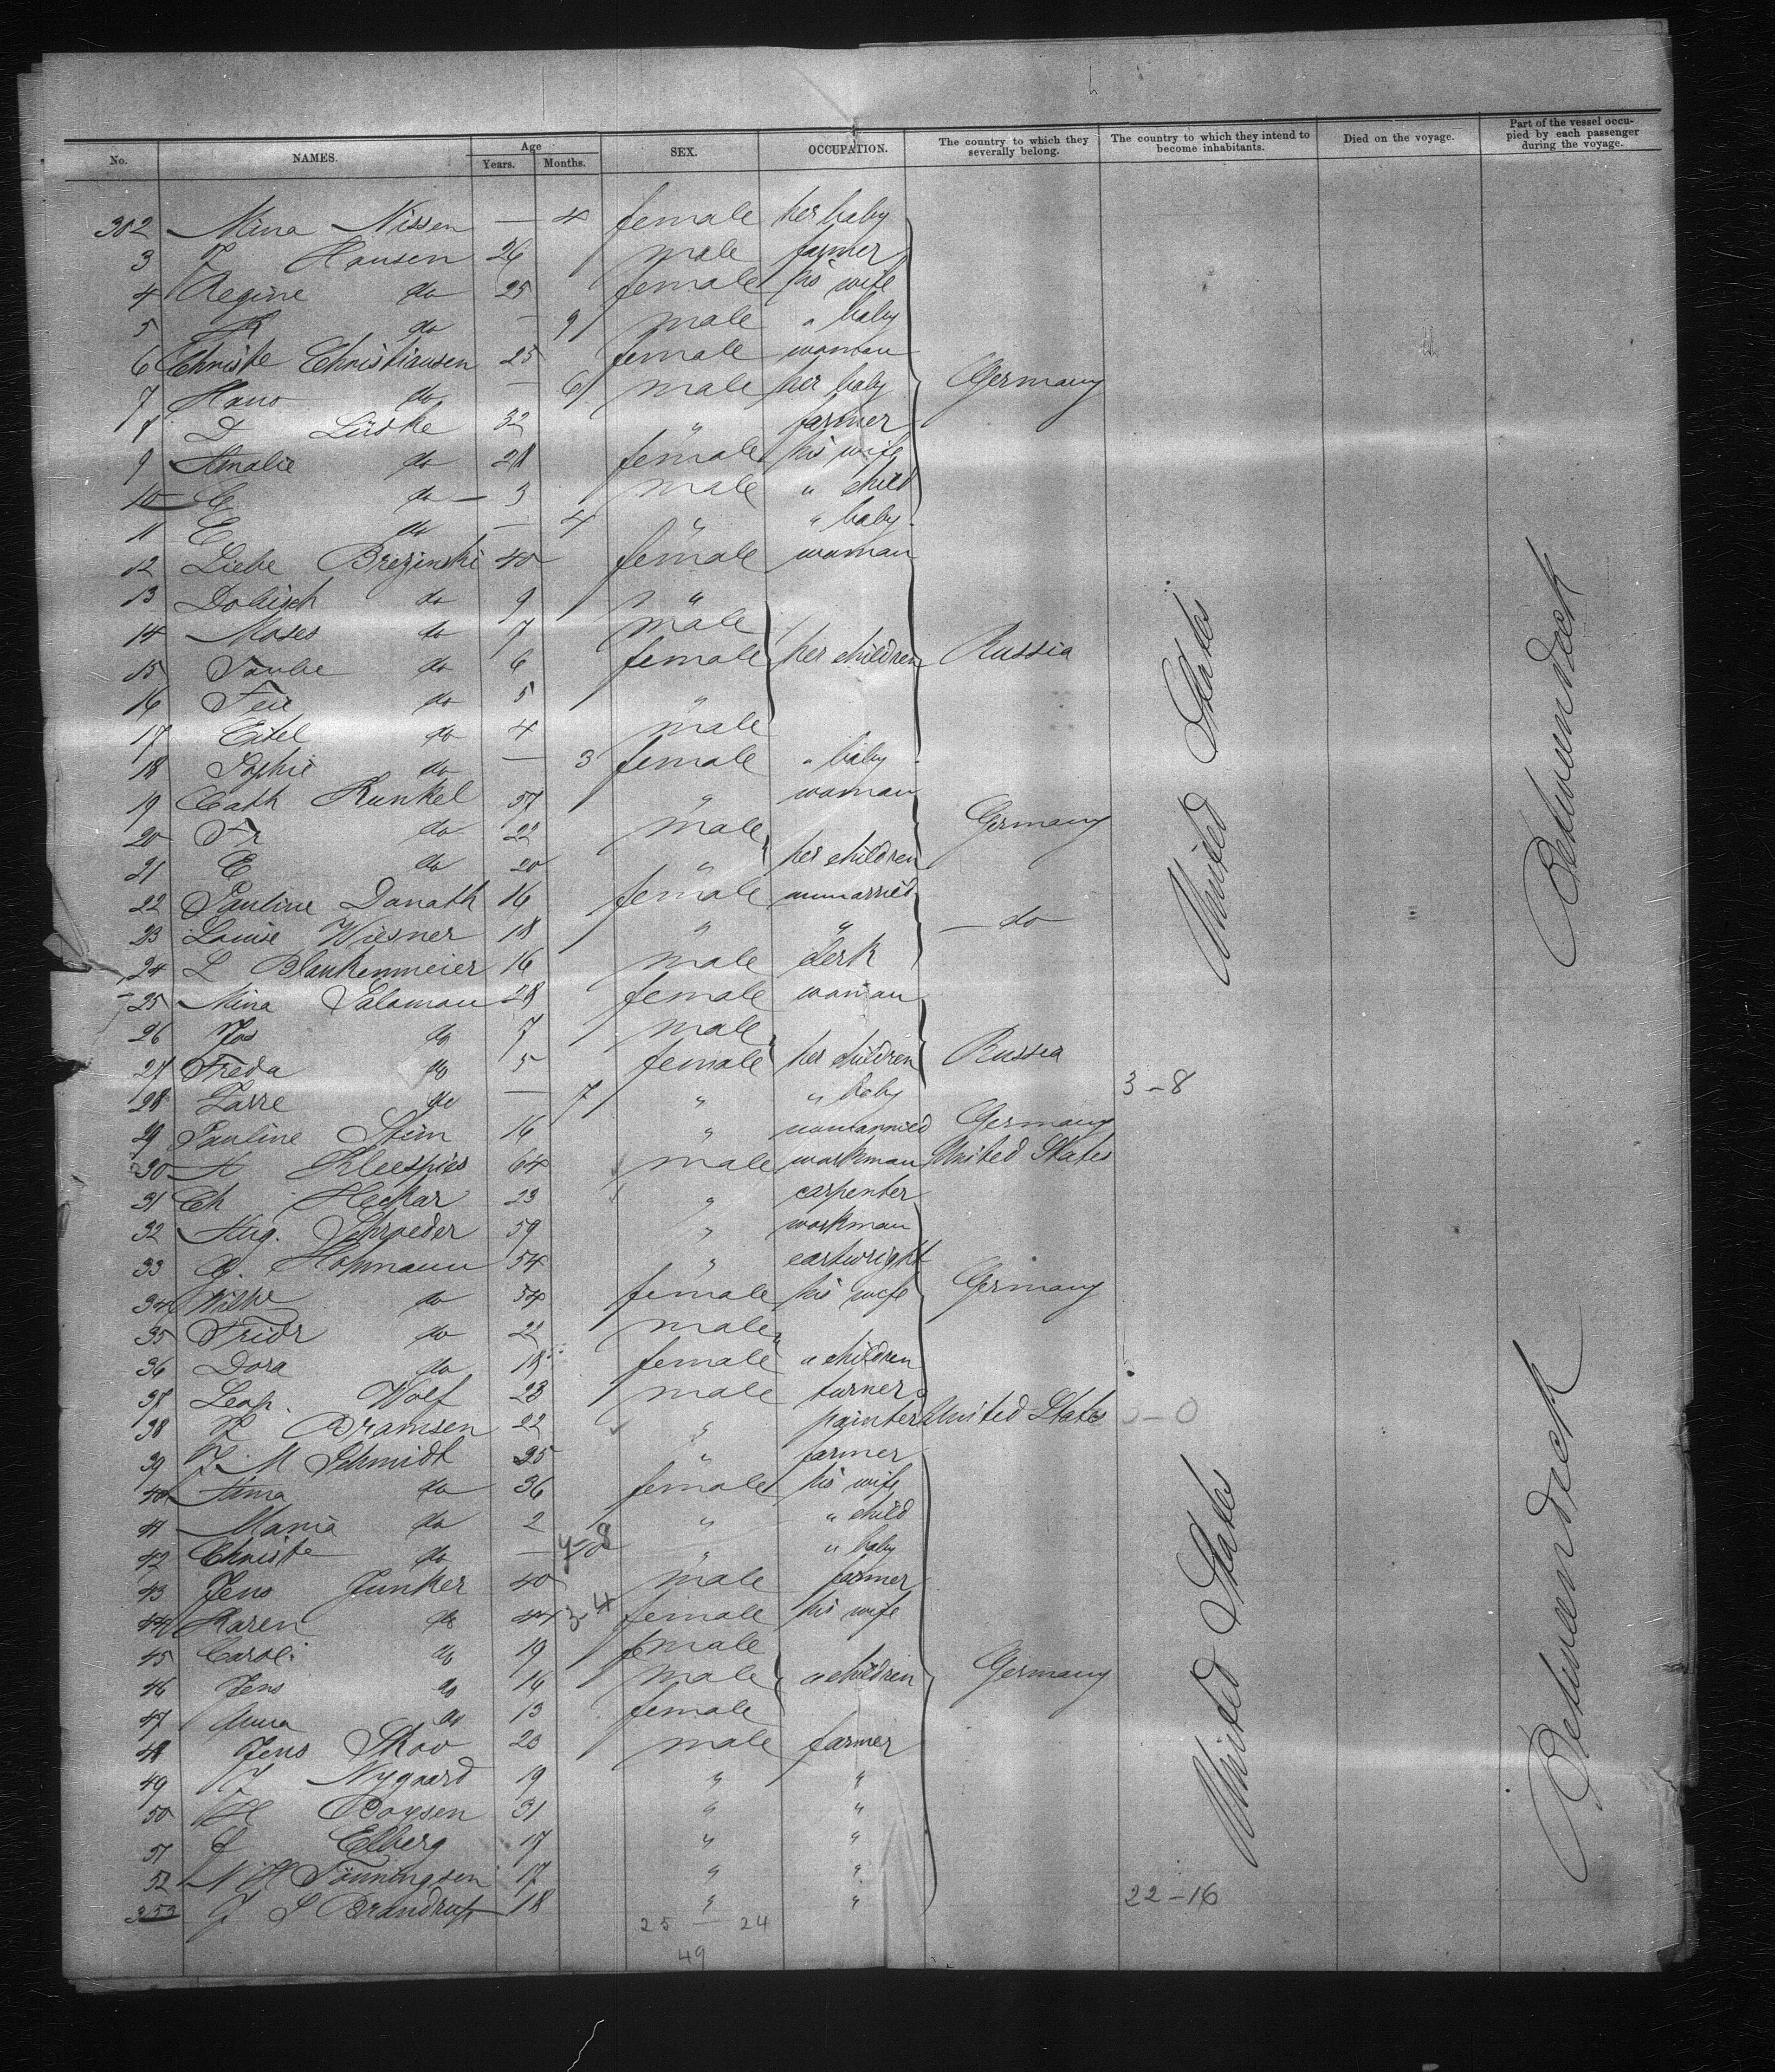 No. NAMES. Age Years. Months. SEX. OCCUPATION. The country to which they severally belong. The country to which they intend to become inhabitants. Died on the voyage. Part of the vessel occupied by each passenger during the voyage.
302 Mina Nissen — 4 female her baby
3 J Hansen 26 male farmer
4 Regine do 25 female his wife
5 do — 9 male " baby
6 Christe Christiansen 25 female woman
7 Hans do — 6 male her baby Germany
8 D Lüdke 32 " farmer
9 Amalie do 28 female his wife
10 do 3 male " child
11 E do — 4 " " baby
12 Liebe Brezinski 40 female woman
13 do 9 "
14 Moses do 7 male
15 Taube do 6 female her children Russia
16 do 5 "
17 Eitel do 4 male
18 Sophie do — 3 female " baby
19 Cath Kunkel 57 " woman
20 Fr do 22 male Germany
21 E do 20 " her children
22 Pauline Donath 16 female unmarried
23 Louise Wiesner 18 " " — do
24 L Blankenmeier 16 male clerk
25 Mina Salaman 28 female woman
26 Jos do 7 male
27 Freda do 5 female her children Russia
28 do — 7 " " baby 3-8
29 Pauline Stein 16 " unmarried Germany
30 A Kleespies 64 male workman United States
31 Ch Heckar 23 " carpenter
32 Aug. Schroeder 59 " workman
33 Hohmann 54 " cartwright
34 Wilhe do 54 female his wife Germany
35 Fridr do 22 male
36 Dora do 18 female " children
37 Leop. Wolf 23 male turner
38 Bramsen 22 " painter United States 3-0
39 J. M Schmidt 35 " farmer
40 Anna do 36 female his wife
41 Maria do 2 " " child
42 Christe do — 8 " " baby
43 Jens Junker 40 male farmer
44 Karen do 44 3-4 female his wife
45 Carol. do 19 female
46 Jens do 14 male " children Germany
47 Anna do 13 female
48 Jens Skov 20 male farmer
49 J Nygaard 19 " "
50 H Boysen 31 " "
51 Elberg 17 " "
52 N H Tönningsen 17 " "
353 J S Brandrup 18 " " 22-16
25 — 24
49
United States
United States
Betweendeck
Betweendeck